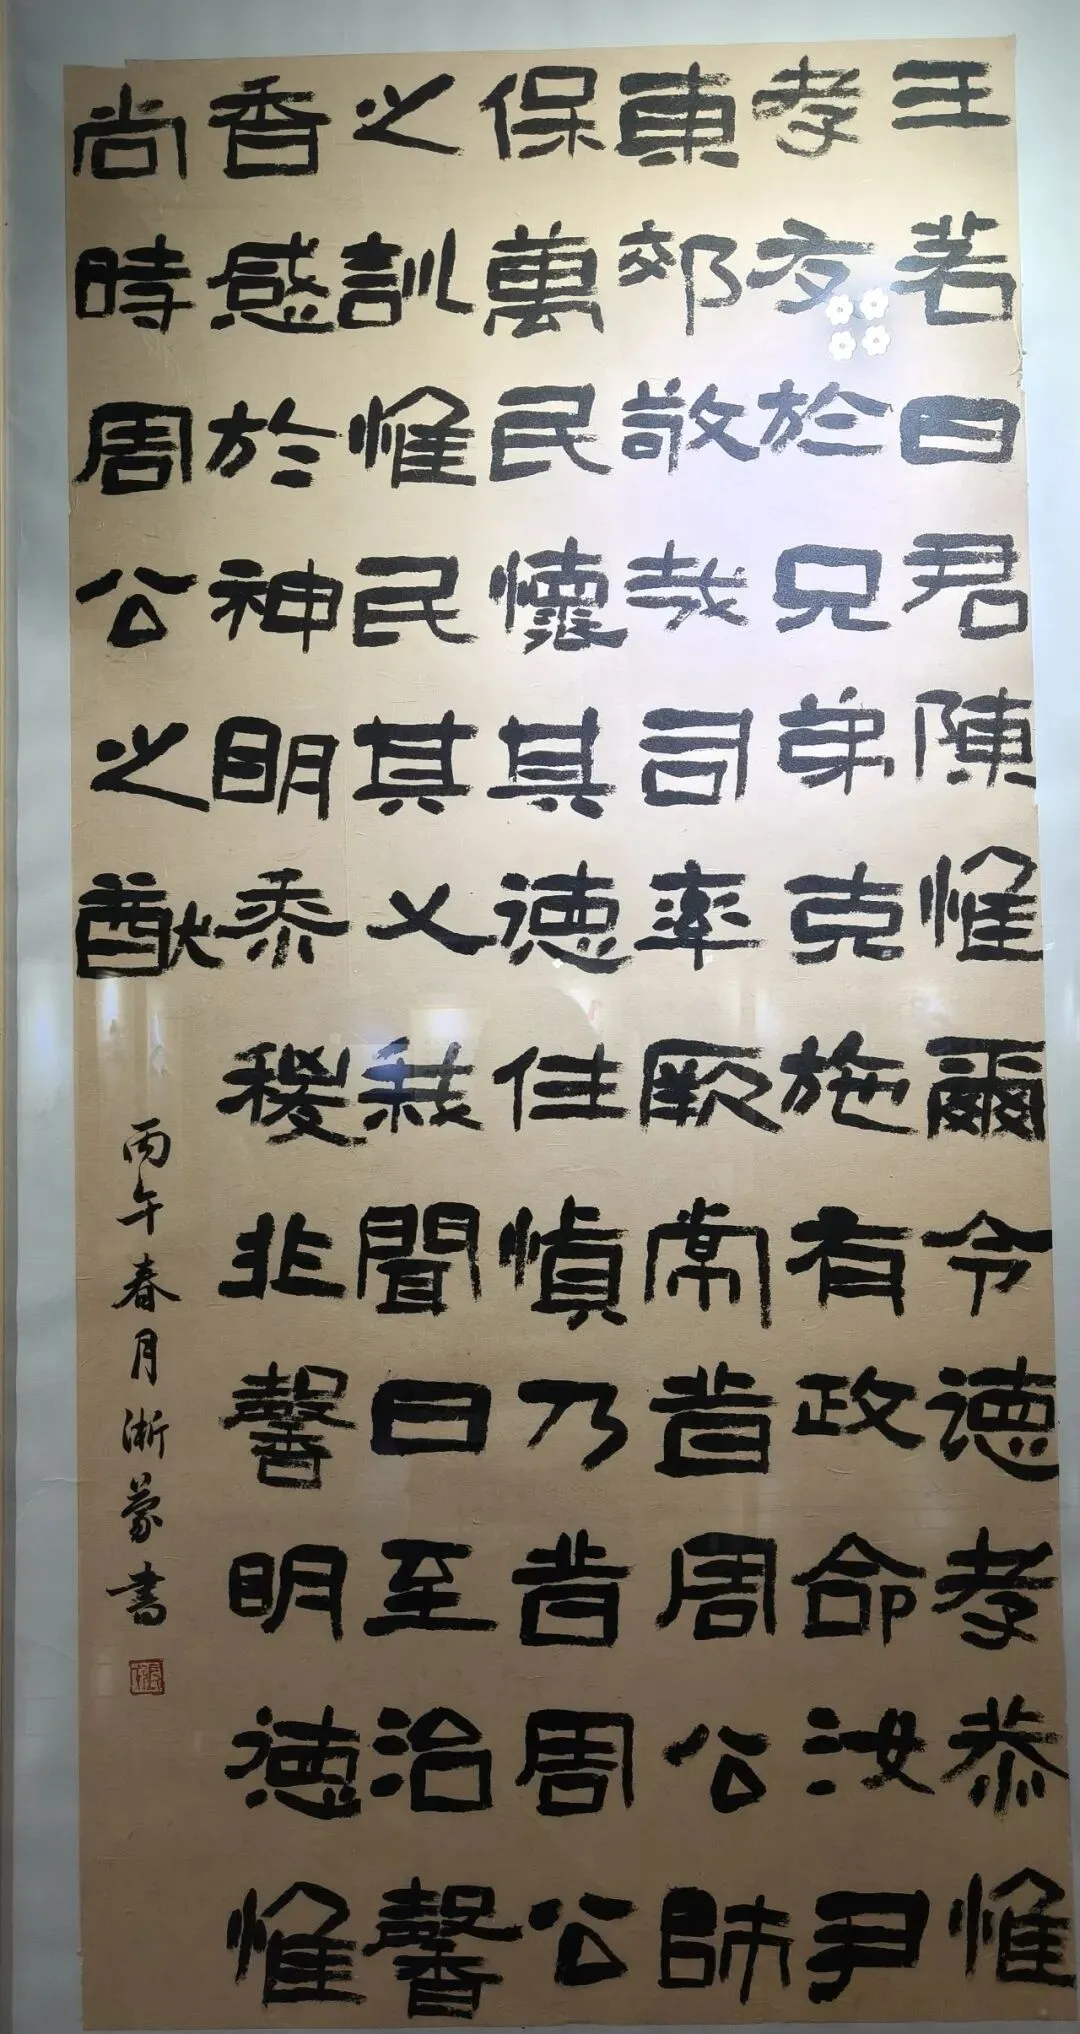 王若曰君陳惟爾令德孝恭惟
孝友於兄弟克施有政命汝尹
東郊敬哉司率厥常昔周公師
保萬民懷其德往慎乃昔周公
之訓惟民其乂我聞曰至治馨
香感於神明黍稷非馨明德惟
尚時周公之猷
丙午春月浙蒙書